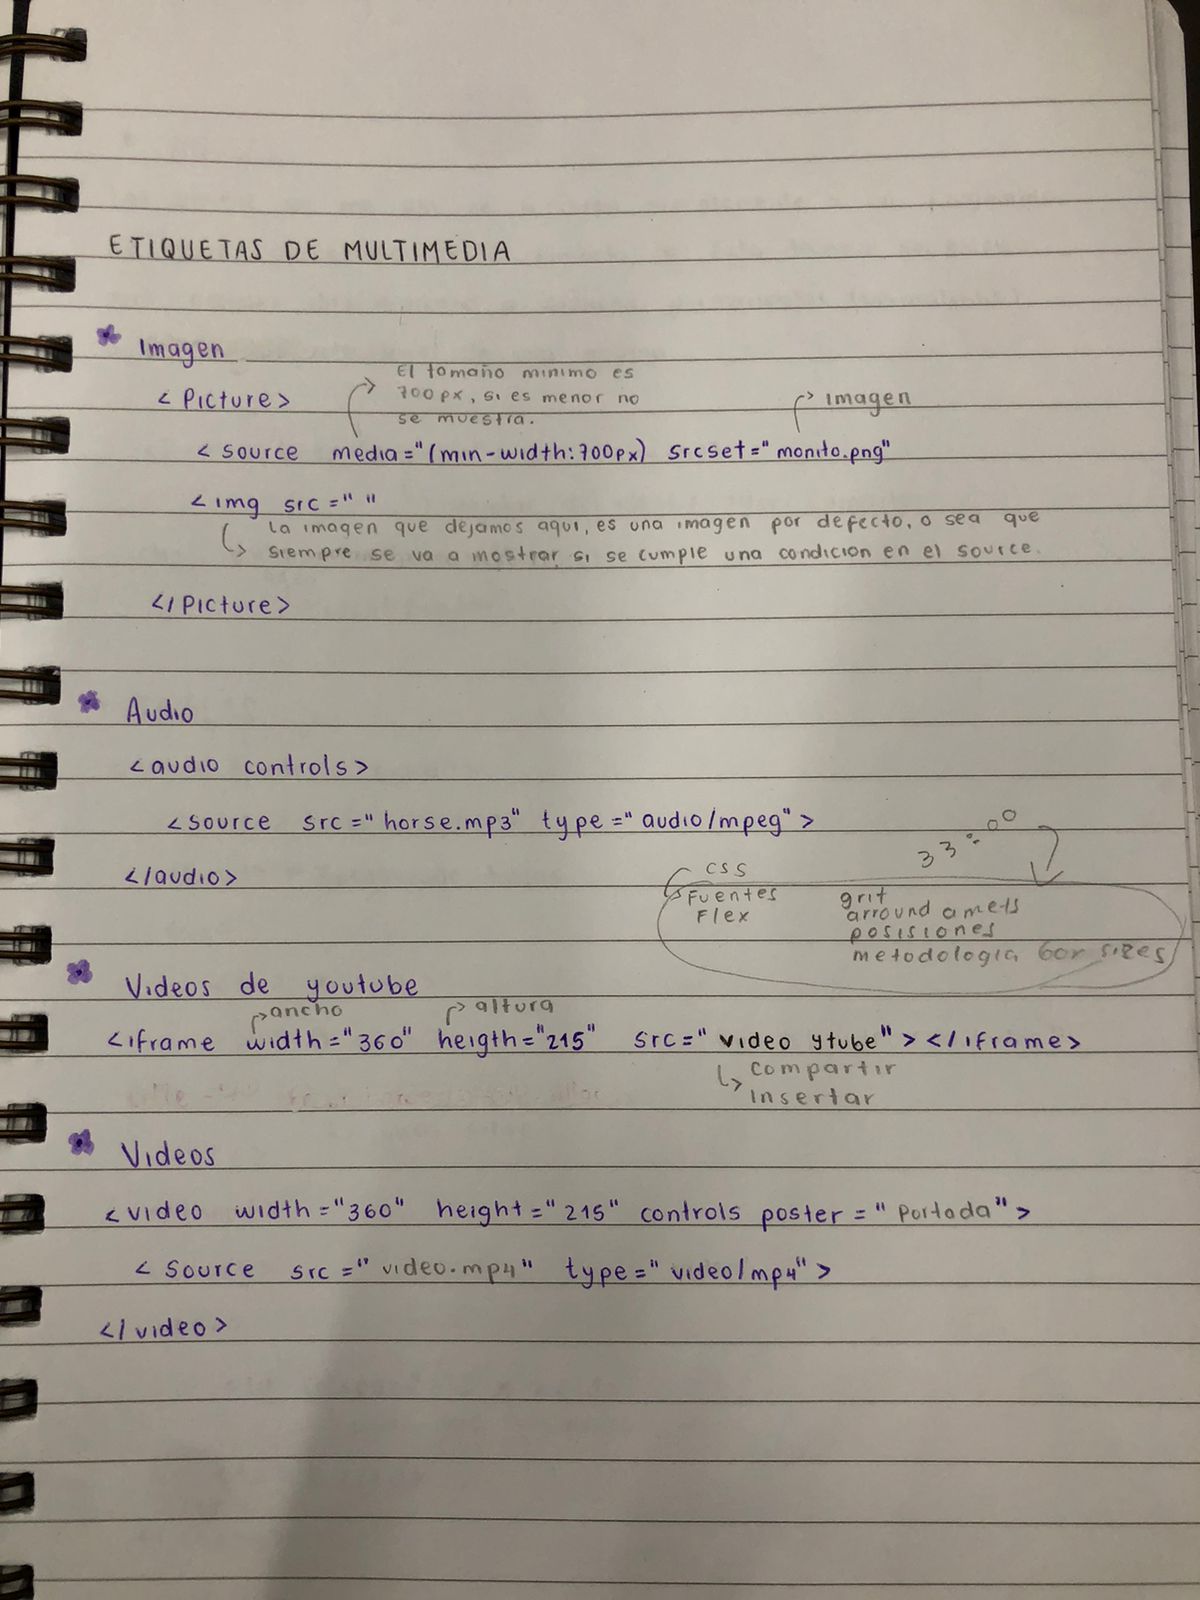 ETIQUETAS DE MULTIMEDIA
Imagen
El tamaño minimo es
<Picture>
700px, si es menor no
se muestra.
imagen
<source media="(min-width:700px) srcset="monito.png"
<img src=" "
la imagen que dejamos aqui, es una imagen por defecto, o sea que
siempre se va a mostrar si se cumple una condicion en el source.
</Picture>
Audio
<audio controls>
<source src="horse.mp3" type="audio/mpeg">
33:00
</audio>
CSS
Fuentes
Flex
grit
arround
posisiones
metodologia sizes
Videos de youtube
ancho
altura
<iframe width="360" heigth="215" src="video ytube"></iframe>
compartir
insertar
Videos
<video width="360" height="215" controls poster="Portada">
<source src="video.mp4" type="video/mp4">
</video>